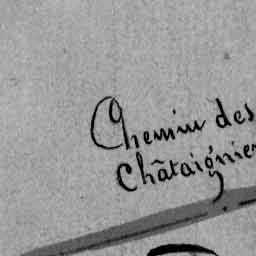 Chemin des
Châtaignier